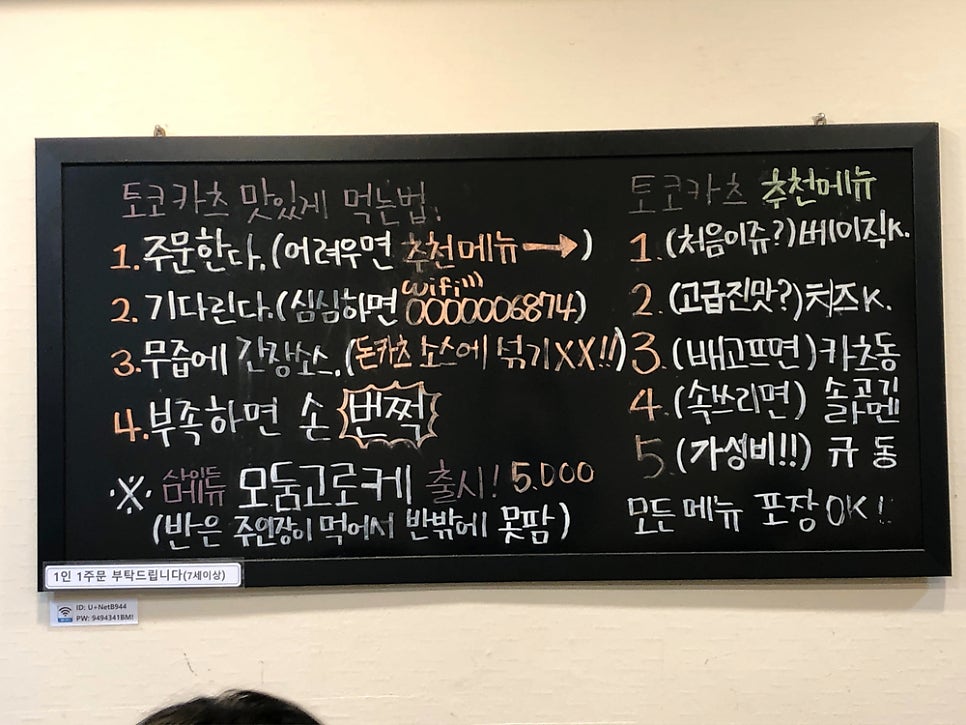 토코카츠 맛있게 먹는법!
1. 주문한다. (어려우면 추천메뉴 →)
wifi
2. 기다린다. (심심하면 0000006874)
3. 무즙에 간장소스. (돈카츠 소스에 섞기XX!!)
4. 부족하면 손 번쩍
※ 모둠고로케 출시! 5.000
(반은 주인장이 먹어서 반밖에 못팜)
토코카츠 추천메뉴
1. (처음이쥬?) 베이직K.
2. (고급진맛?) 치즈K.
3. (배고프면) 카츠동
4. (속쓰리면) 소고기라멘
5. (가성비!!) 규동
모든 메뉴 포장 OK!
1인 1주문 부탁드립니다(7세이상)
ID: U+NetB944
PW: 9494341BM!